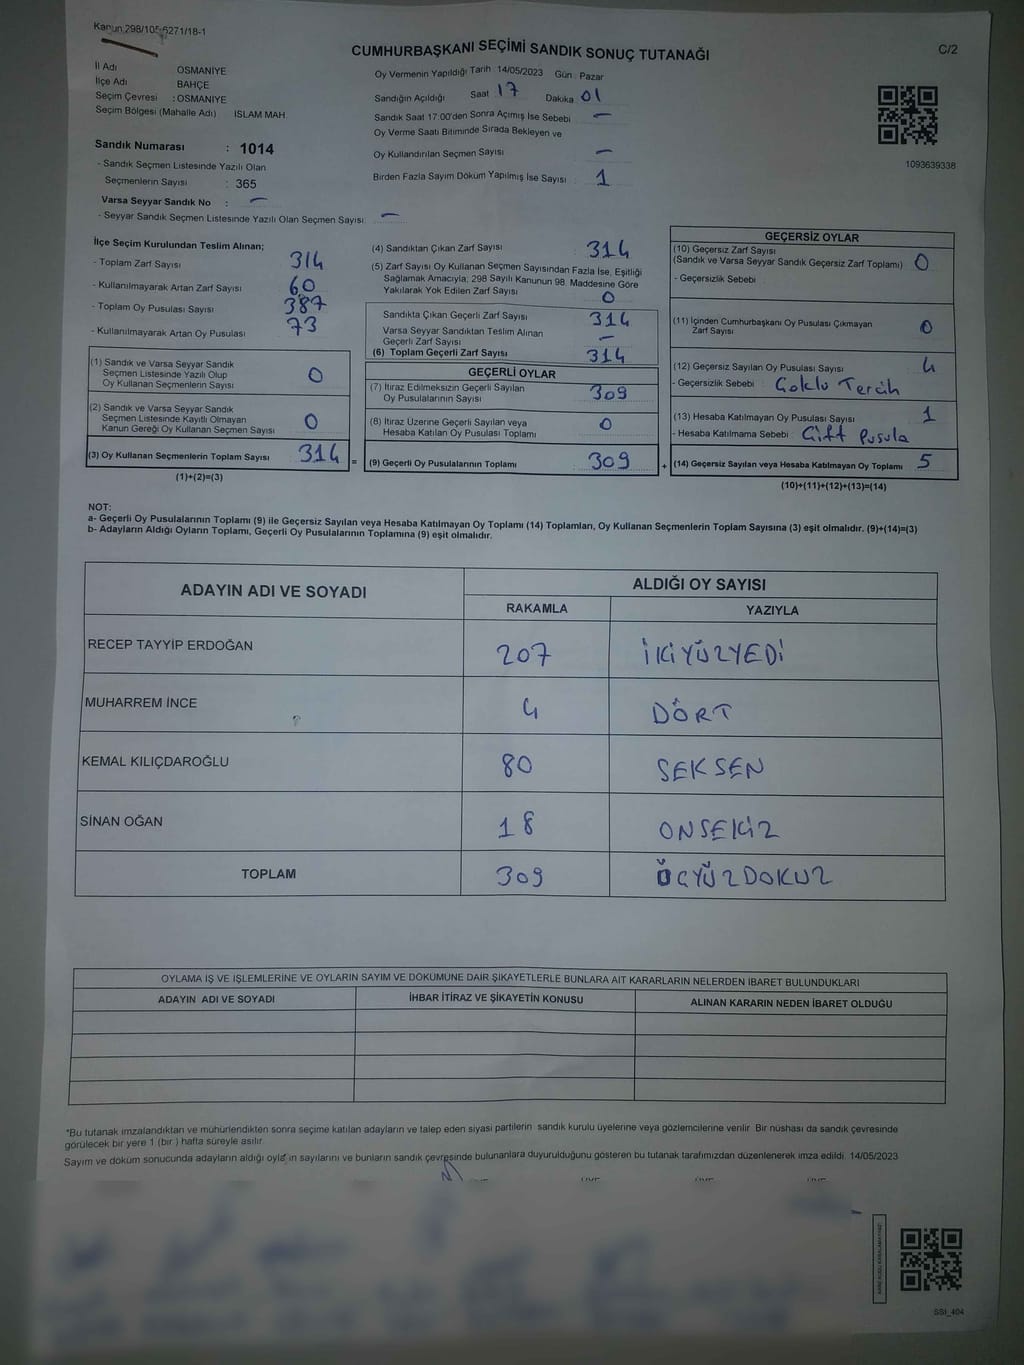 Kanun:298/105-5271/18-1
CUMHURBAŞKANI SEÇİMİ SANDIK SONUÇ TUTANAĞI
C/2
İl Adı OSMANİYE
İlçe Adı BAHÇE
Seçim Çevresi : OSMANİYE
Seçim Bölgesi (Mahalle Adı) ISLAM MAH.
Sandık Numarası : 1014
- Sandık Seçmen Listesinde Yazılı Olan
Seçmenlerin Sayısı : 365
Varsa Seyyar Sandık No : —
- Seyyar Sandık Seçmen Listesinde Yazılı Olan Seçmen Sayısı —
Oy Vermenin Yapıldığı Tarih : 14/05/2023 Gün : Pazar
Sandığın Açıldığı Saat 17 Dakika 01
Sandık Saat 17:00'den Sonra Açımış İse Sebebi —
Oy Verme Saati Bitiminde Sırada Bekleyen ve
Oy Kullandırılan Seçmen Sayısı —
Birden Fazla Sayım Döküm Yapılmış İse Sayısı : 1
1093639338
İlçe Seçim Kurulundan Teslim Alınan;
- Toplam Zarf Sayısı 314
- Kullanılmayarak Artan Zarf Sayısı 60
- Toplam Oy Pusulası Sayısı 387
- Kullanılmayarak Artan Oy Pusulası 73
(1) Sandık ve Varsa Seyyar Sandık
Seçmen Listesinde Yazılı Olup
Oy Kullanan Seçmenlerin Sayısı 0
(2) Sandık ve Varsa Seyyar Sandık
Seçmen Listesinde Kayıtlı Olmayan
Kanun Gereği Oy Kullanan Seçmen Sayısı 0
(3) Oy Kullanan Seçmenlerin Toplam Sayısı 314
(1)+(2)=(3)
(4) Sandıktan Çıkan Zarf Sayısı 314
(5) Zarf Sayısı Oy Kullanan Seçmen Sayısından Fazla İse, Eşitliği
Sağlamak Amacıyla; 298 Sayılı Kanunun 98. Maddesine Göre
Yakılarak Yok Edilen Zarf Sayısı 0
Sandıkta Çıkan Geçerli Zarf Sayısı 314
Varsa Seyyar Sandıktan Teslim Alınan
Geçerli Zarf Sayısı —
(6) Toplam Geçerli Zarf Sayısı 314
GEÇERLİ OYLAR
(7) İtiraz Edilmeksizin Geçerli Sayılan
Oy Pusulalarının Sayısı 309
(8) İtiraz Üzerine Geçerli Sayılan veya
Hesaba Katılan Oy Pusulası Toplamı 0
= (9) Geçerli Oy Pusulalarının Toplamı 309 +
GEÇERSİZ OYLAR
(10) Geçersiz Zarf Sayısı
(Sandık ve Varsa Seyyar Sandık Geçersiz Zarf Toplamı) 0
- Geçersizlik Sebebi :
(11) İçinden Cumhurbaşkanı Oy Pusulası Çıkmayan
Zarf Sayısı 0
(12) Geçersiz Sayılan Oy Pusulası Sayısı 4
- Geçersizlik Sebebi : Çoklu Tercih
(13) Hesaba Katılmayan Oy Pusulası Sayısı 1
- Hesaba Katılmama Sebebi : Çift Pusula
(14) Geçersiz Sayılan veya Hesaba Katılmayan Oy Toplamı 5
(10)+(11)+(12)+(13)=(14)
NOT:
a- Geçerli Oy Pusulalarının Toplamı (9) ile Geçersiz Sayılan veya Hesaba Katılmayan Oy Toplamı (14) Toplamları, Oy Kullanan Seçmenlerin Toplam Sayısına (3) eşit olmalıdır. (9)+(14)=(3)
b- Adayların Aldığı Oyların Toplamı, Geçerli Oy Pusulalarının Toplamına (9) eşit olmalıdır.
ADAYIN ADI VE SOYADI ALDIĞI OY SAYISI
RAKAMLA YAZIYLA
RECEP TAYYİP ERDOĞAN 207 İKİYÜZYEDİ
MUHARREM İNCE 4 DÖRT
KEMAL KILIÇDAROĞLU 80 SEKSEN
SİNAN OĞAN 18 ONSEKİZ
TOPLAM 309 ÜÇYÜZDOKUZ
OYLAMA İŞ VE İŞLEMLERİNE VE OYLARIN SAYIM VE DÖKÜMÜNE DAİR ŞİKAYETLERLE BUNLARA AİT KARARLARIN NELERDEN İBARET BULUNDUKLARI
ADAYIN ADI VE SOYADI İHBAR İTİRAZ VE ŞİKAYETİN KONUSU ALINAN KARARIN NEDEN İBARET OLDUĞU
*Bu tutanak imzalandıktan ve mühürlendikten sonra seçime katılan adayların ve talep eden siyasi partilerin sandık kurulu üyelerine veya gözlemcilerine verilir. Bir nüshası da sandık çevresinde
görülecek bir yere 1 (bir ) hafta süreyle asılır.
Sayım ve döküm sonucunda adayların aldığı oyların sayılarını ve bunların sandık çevresinde bulunanlara duyurulduğunu gösteren bu tutanak tarafımızdan düzenlenerek imza edildi. 14/05/2023
SSI_404